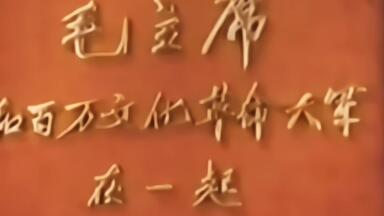 毛主席
和百万文化革命大军
在一起